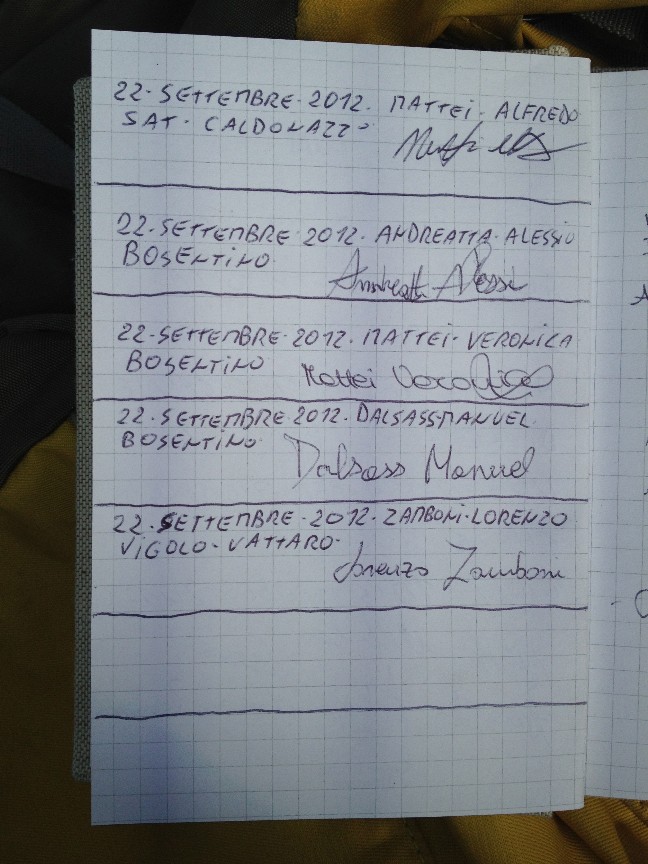 22. SETTEMBRE. 2012. MATTEI. ALFREDO
SAT. CALDONAZZO
22. SETTEMBRE. 2012. ANDREATTA. ALESSIO
BOSENTINO.
Andreatta Alessio
22. SETTEMBRE. 2012. MATTEI. VERONICA
BOSENTINO
Mattei Veronica
22. SETTEMBRE. 2012. DALSASS. MANUEL.
BOSENTINO.
Dalsass Manuel
22. SETTEMBRE. 2012. ZAMBONI. LORENZO
VIGOLO. VATTARO.
Lorenzo Zamboni